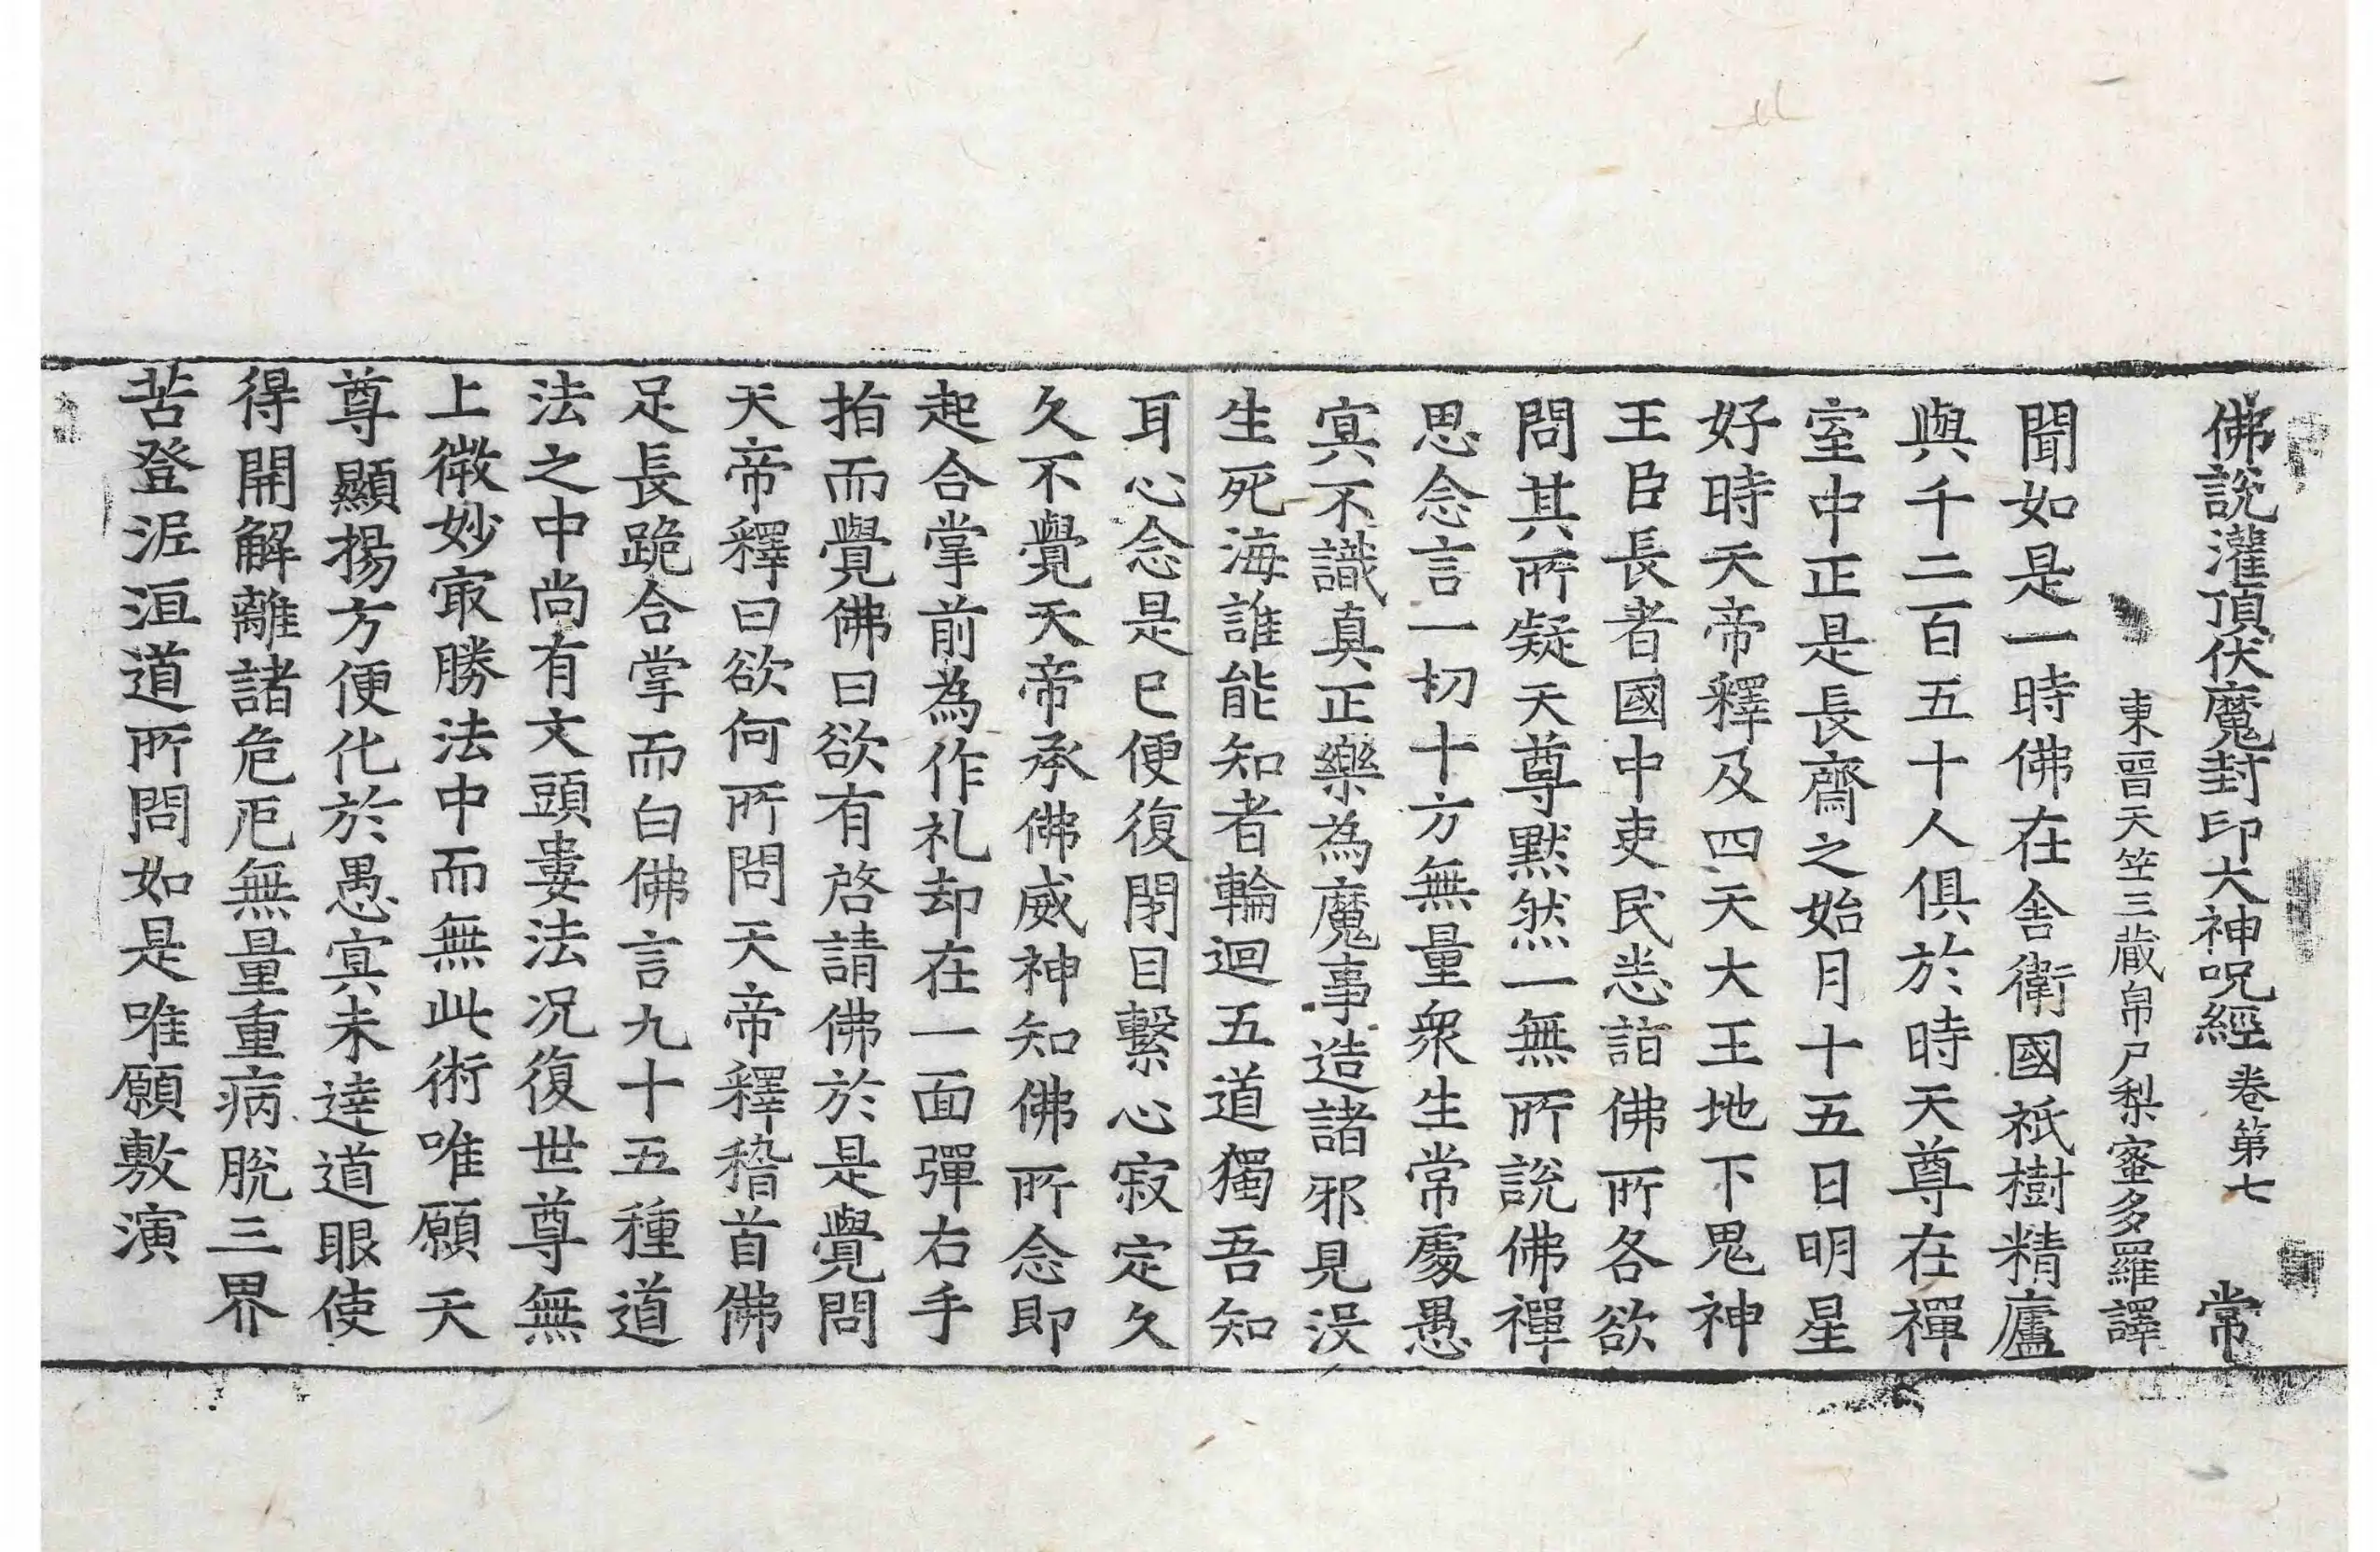 佛說灌頂伏魔封印大神呪經卷第七　常
東晉天竺三藏帛尸梨蜜多羅譯
聞如是一時佛在舍衛國祇樹精廬
與千二百五十人俱於時天尊在禪
室中正是長齋之始月十五日明星
好時天帝釋及四天大王地下鬼神
王臣長者國中吏民悉詣佛所各欲
問其所疑天尊默然一無所說佛禪
思念言一切十方無量衆生常處愚
冥不識真正樂為魔事造諸邪見没
生死海誰能知者輪迴五道獨吾知
耳心念是已便復閉目繫心寂定久
久不覺天帝承佛威神知佛所念即
起合掌前為作礼却在一面彈右手
指而覺佛曰欲有啓請佛於是覺問
天帝釋曰欲何所問天帝釋稽首佛
足長跪合掌而白佛言九十五種道
法之中尚有文頭婁法况復世尊無
上微妙㝡勝法中而無此術唯願天
尊顯揚方便化於愚冥未達道眼使
得開解離諸危厄無量重病脫三界
苦登泥洹道所問如是唯願敷演